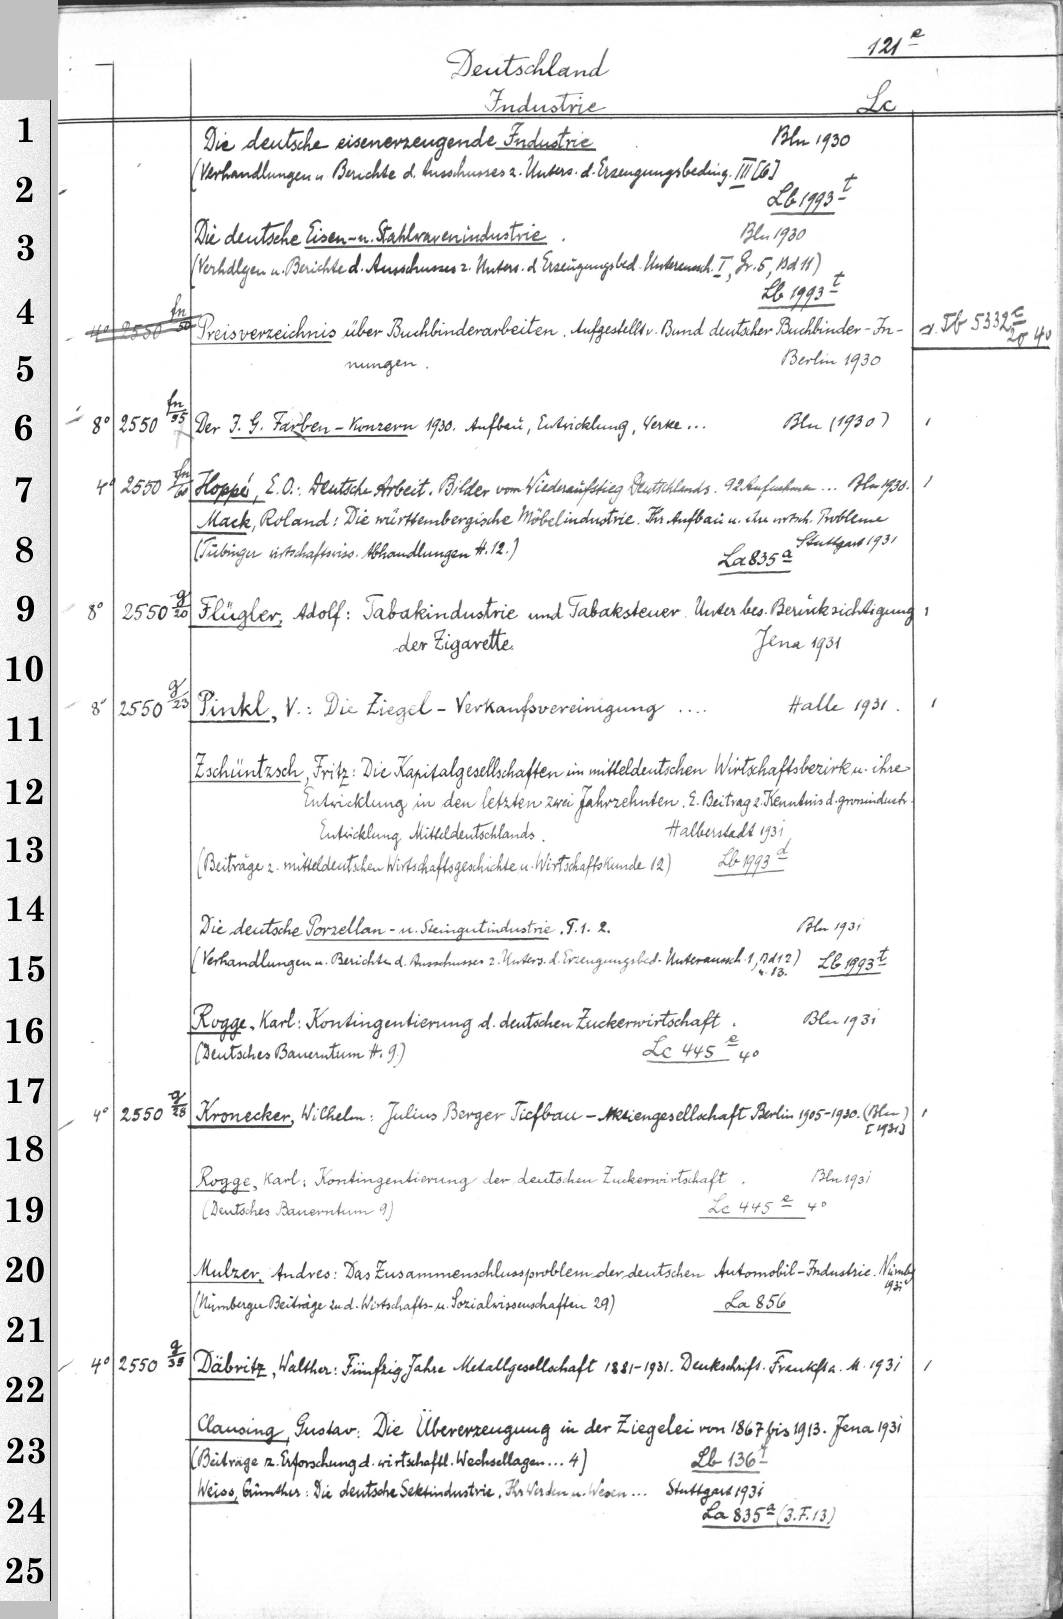 121 e
Deutschland
Industrie Lc
1
Die deutsche eisenerzeugende Industrie Bln 1930
2
(Verhandlungen u. Berichte d. Ausschusses z. Unters. d. Erzeugungsbeding. III [6]
Lb 1993 t
3
Die deutsche Eisen- u. Stahlwarenindustrie. Bln 1930
(Verhdlgen u. Berichte d. Ausschusses z. Unters. d Erzeugungsbed. Unterausch. I, Gr. 5, Bd 11)
Lb 1993 t
4
4° 2550 fn/50 Preisverzeichnis über Buchbinderarbeiten. Aufgestellt v. Bund deutscher Buchbinder-In- s. Tb 5332 c/20 4°
5
nungen. Berlin 1930
6
8° 2550 fn/55 Der I. G. Farben-Konzern 1930. Aufbau, Entwicklung, Werke ... Bln (1930)
7
4° 2550 fn/60 Hoppé, E. O.: Deutsche Arbeit. Bilder vom Wiederaufstieg Deutschlands. 92 Aufnahmen ... Bln 1930.
Mack, Roland: Die württembergische Möbelindustrie. Ihr Aufbau u. ihre wrtsch. Probleme
Stuttgart 1931
8
(Tübinger wirtschaftswiss. Abhandlungen H. 12.) La 835 a
9
8° 2550 g/20 Flügler, Adolf: Tabakindustrie und Tabaksteuer. Unter bes. Berücksichtigung
der Zigarette. Jena 1931
10
8° 2550 g/23 Pinkl, V.: Die Ziegel-Verkaufsvereinigung .... Halle 1931.
11
Zschüntzsch, Fritz: Die Kapitalgesellschaften im mitteldeutschen Wirtschaftsbezirk u. ihre
12
Entwicklung in den letzten zwei Jahrzehnten. E. Beitrag z. Kenntnis d. grossindustr.
Entwicklung Mitteldeutschlands. Halberstadt 1931
13
(Beiträge z. mitteldeutschen Wirtschaftsgeschichte u. Wirtschaftskunde 12) Lb 1993 d
14
Die deutsche Porzellan- u. Steingutindustrie. T. 1. 2. Bln 1931
15
(Verhandlungen u. Berichte d. Ausschusses z. Unters. d. Erzeugungsbed. Unterausch. 1, Bd 12 u. 13.) Lb 1993 t
16
Rogge, Karl: Kontingentierung d. deutschen Zuckerwirtschaft. Bln 1931
(Deutsches Bauerntum H. 9.) Lc 445 e 4°
17
4° 2550 g/28 Kronecker, Wilhelm: Julius Berger Tiefbau-Aktiengesellschaft Berlin 1905-1930. (Bln)
[1931]
18
Rogge, Karl: Kontingentierung der deutschen Zuckerwirtschaft. Bln 1931
19
(Deutsches Bauerntum 9) Lc 445 e 4°
20
Mulzer, Andres: Das Zusammenschlussproblem der deutschen Automobil-Industrie. Nürnbg
1931
(Nürnberger Beiträge zu d. Wirtschafts- u. Sozialwissenschaften 29) La 856
21
4° 2550 g/35 Däbritz, Walther: Fünfzig Jahre Metallgesellschaft 1881-1931. Denkschrift. Frankft a. M. 1931
22
Clausing, Gustav: Die Übererzeugung in der Ziegelei von 1867 bis 1913. Jena 1931
23
(Beiträge z. Erforschung d. wirtschaftl. Wechsellagen ... 4) Lb 136 f
Weiss, Günther: Die deutsche Sektindustrie. Ihr Werden u. Wesen ... Stuttgart 1931
24
La 835 a (3. F. 13)
25